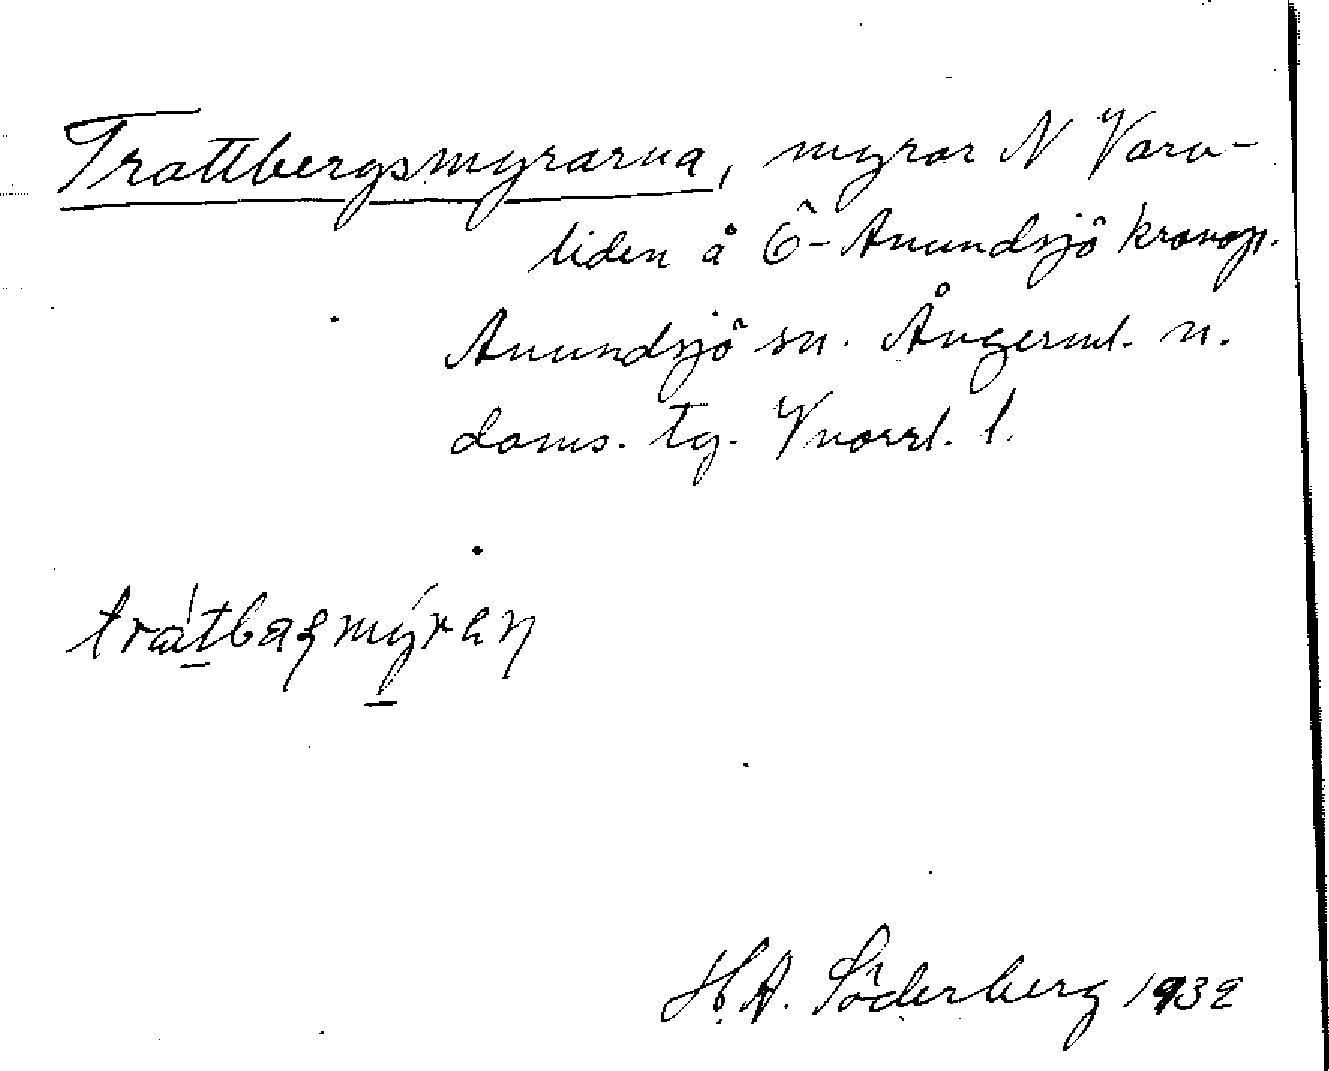 Trattbergsmyrarna, myrar N Varv-
liden å Ö-Anundsjö kronop.
Anundsjö sn. Ångerml. n.
doms. tg. Vnorrl. l.
H.A. Söderberg 1932